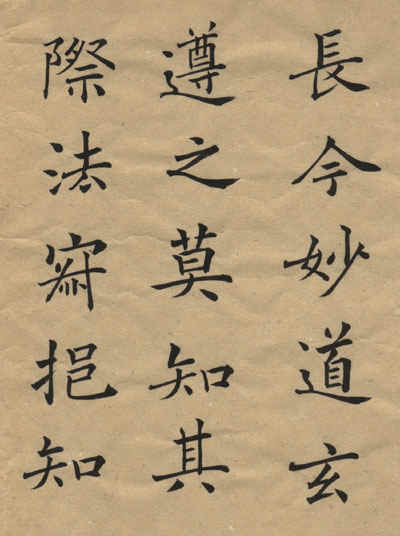 長今妙道玄
遵之莫知其
際法寂挹知